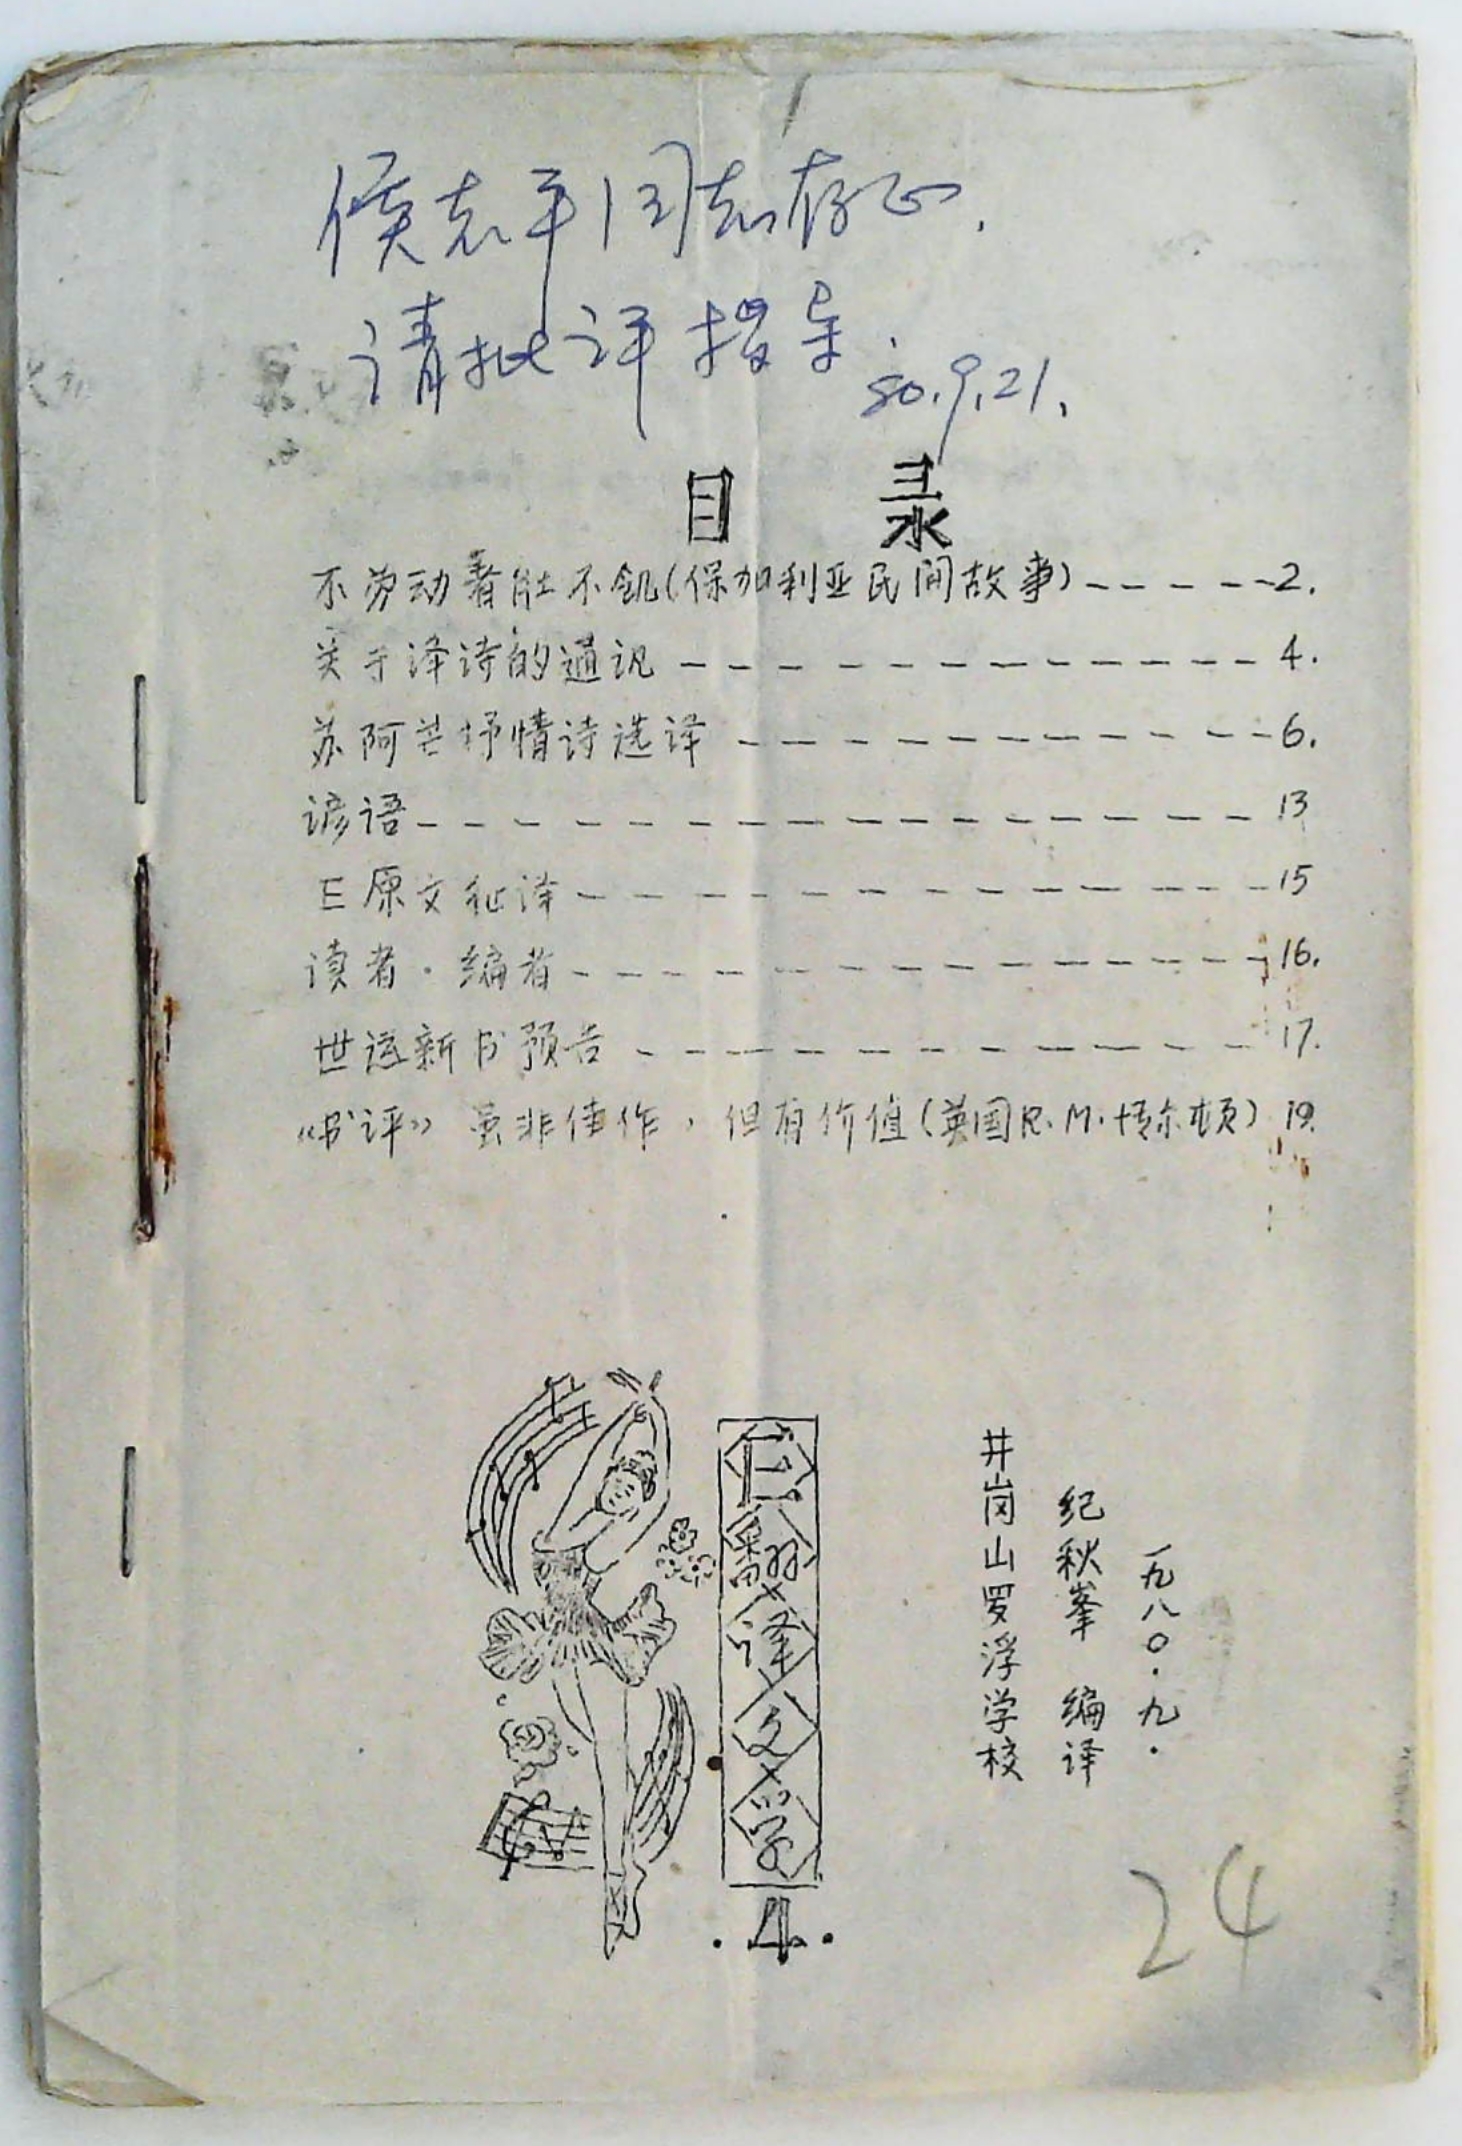 侯志平同志存正.
请批评指导.
80.9.21.
目 录
不劳动者肚不飢(保加利亚民间故事)-----2.
关于译诗的通讯------------4.
苏阿芒抒情诗选译-----------6.
谚语-----------------13
E原文征译--------------15
读者·编者--------------16.
世运新书预告------------17.
《书评》虽非佳作,但有价值(英国R.M. 19.
E翻译文学
.4.
一九八〇·九·
纪秋峯 编译
井岗山罗浮学校
24